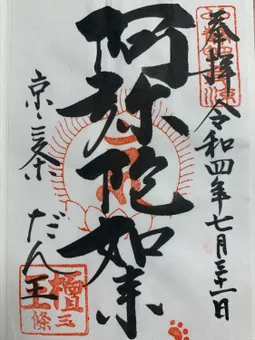 奉拝 令和四年七月三十一日
阿弥陀如来
京三条 だん王
檀王
三條